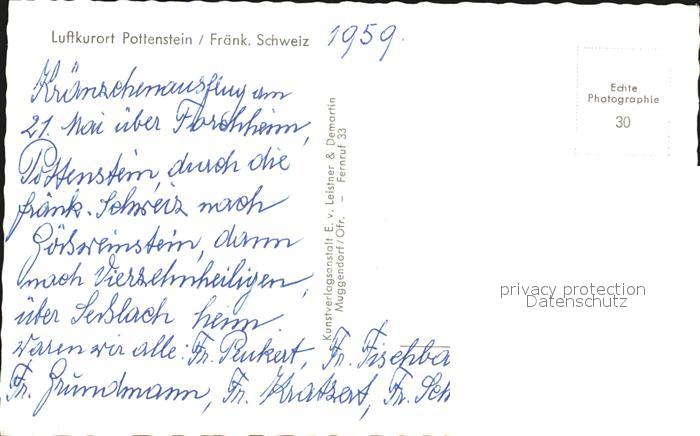 Luftkurort Pottenstein / Fränk. Schweiz 1959.
Kränzchenausflug am
21. Mai über Forchheim,
Pottenstein, durch die
fränk. Schweiz nach
Gößweinstein, dann
nach Vierzehnheiligen,
über Seßlach heim.
Waren wir alle: Fr. Rukert, Fr. Fischba
Fr. Grundmann, Fr. Kratzat, Fr. Sch
Kunstverlagsanstalt E. v. Leistner & Demartin
Muggendorf/Ofr. – Fernruf 33
Echte
Photographie
30
privacy protection
Datenschutz